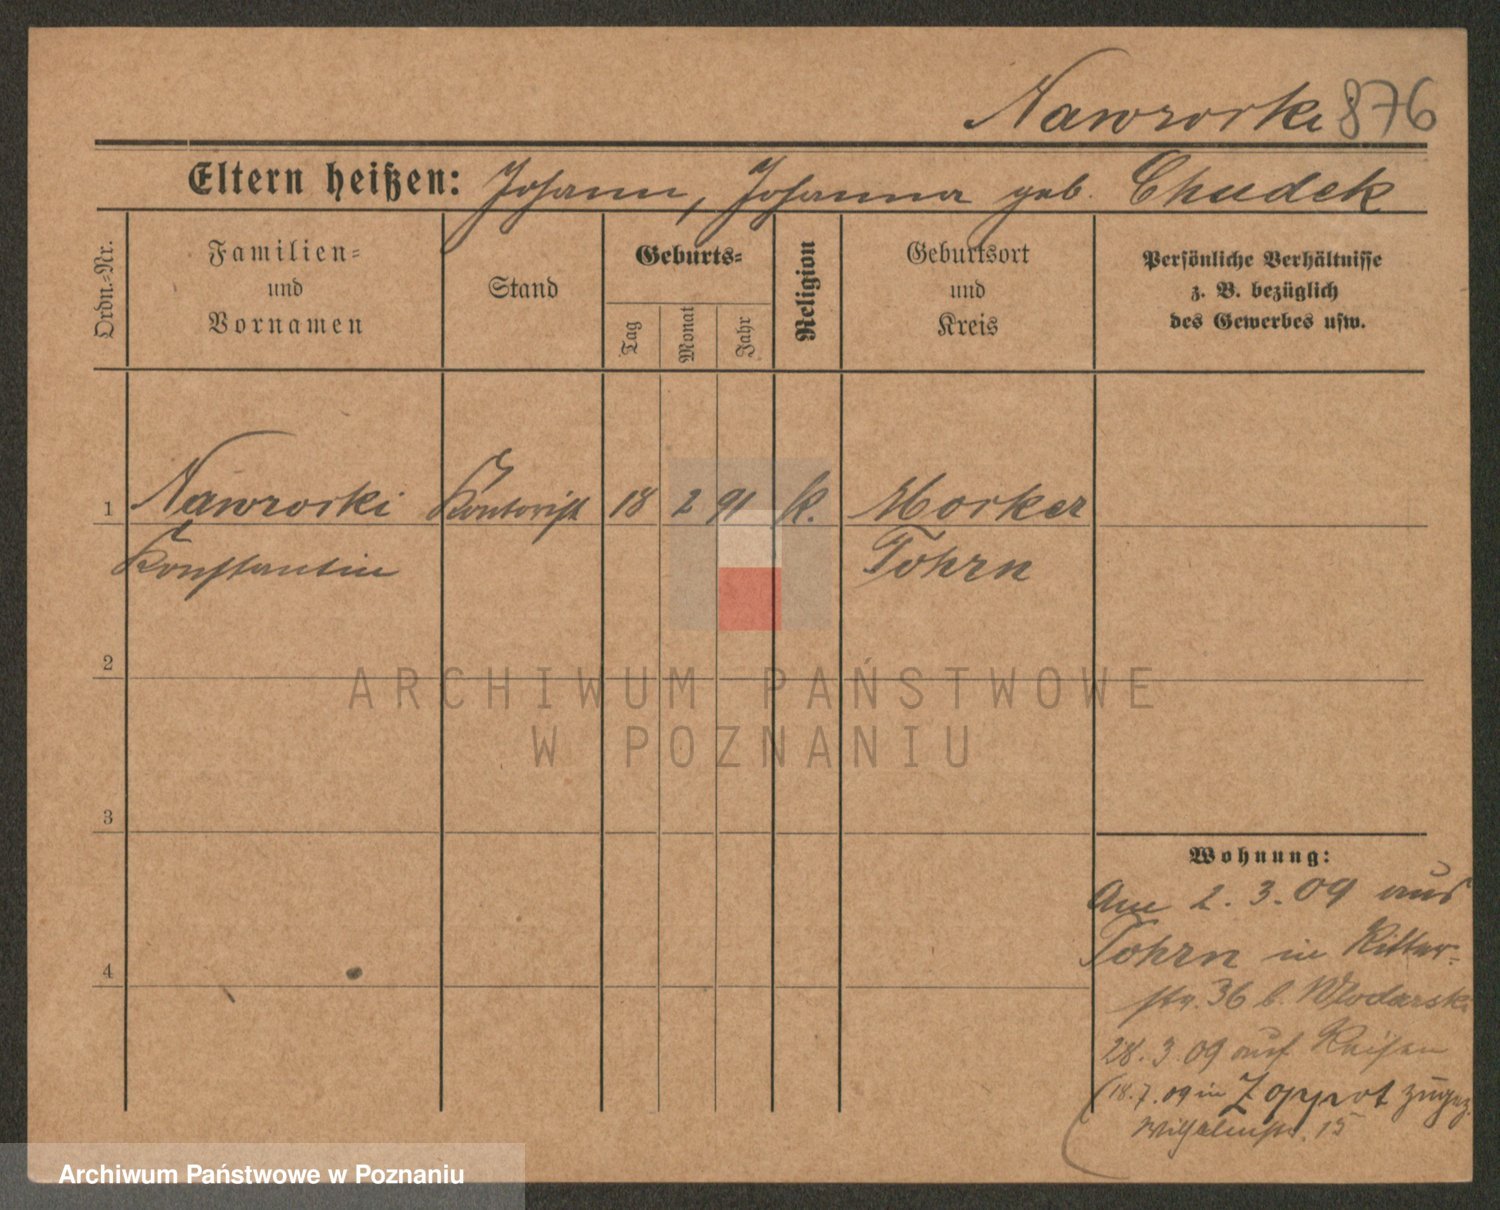 Nawrocki 876
Eltern heißen: Johann, Johanna geb. Chudek
Ordn.-Nr.
Familien-
und
Vornamen
Stand
Geburts-
Tag
Monat
Jahr
Religion
Geburtsort
und
Kreis
Persönliche Verhältnisse
z. B. bezüglich
des Gewerbes usw.
1 Nawrocki Kontorist 18 2 91 k. Mocker
Konstantin Tohrn
2
3
4
Wohnung:
Am 2. 3. 09 aus
Tohrn in Ritter-
str. 36 b. Wlodarski
28. 3. 09 auf Reisen
(18. 7. 09 in Zoppot zugez.
Wilhelmstr. 15
ARCHIWUM PAŃSTWOWE
W POZNANIU
Archiwum Państwowe w Poznaniu